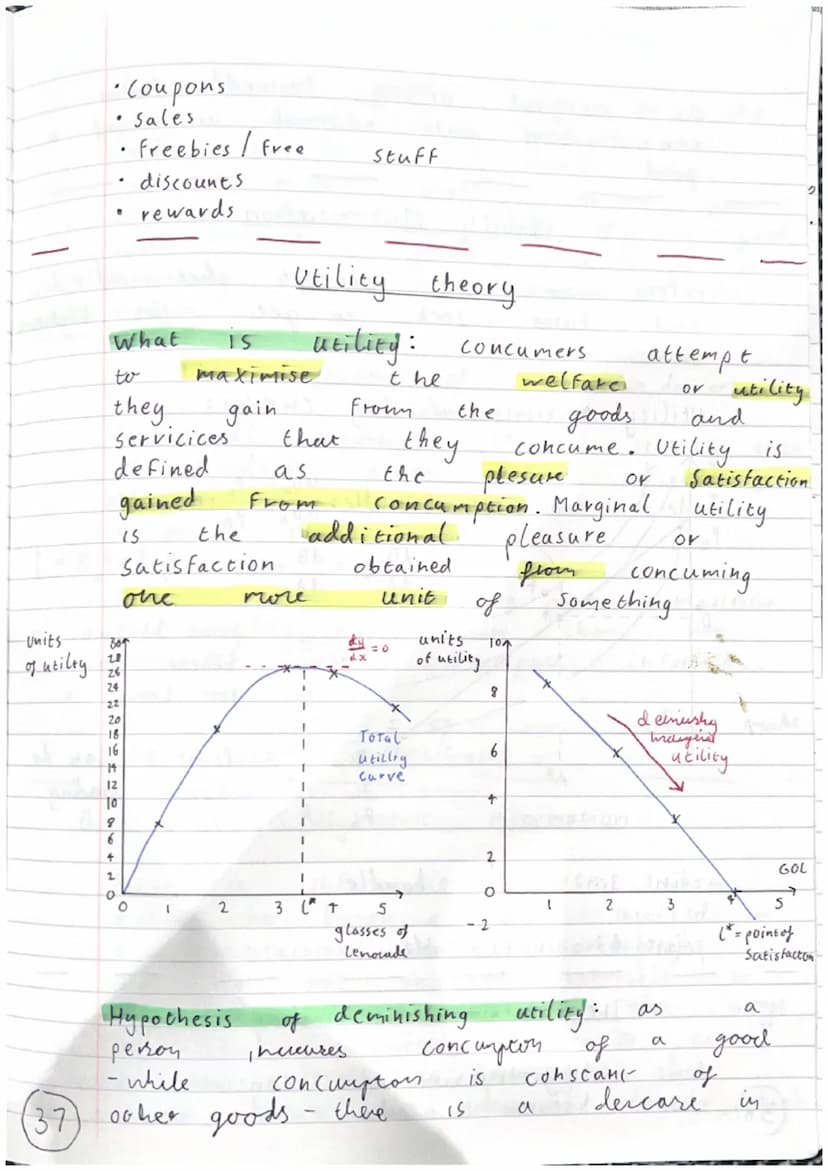 • coupons
• sales
• freebies / free stuff
• discounts
• rewards
Utility theory
What is utility: concumers attempt
to maximise the welfare or utility
they gain from the goods and
servicices that they concume. Utility is
defined as the plesure or satisfaction
gained from concumption. Marginal utility
is the additional pleasure or
satisfaction obtained from concuming
one more unit of something
units of utilty
30
28
26
24
22
20
18
16
14
12
10
8
6
4
2
0
dy/dx = 0
Total
utility
curve
0 1 2 3 L* 4 5
glasses of
lemonade
units
of utility
10
8
6
4
2
0
-2
deminishg
marginal
utility
GOL
1 2 3 4 5
L* = point of
satisfaction
Hypothesis of deminishing utility: as a
person increases concumpton of a good
- while concumpton is constant of
other goods - there is a decrare in
37